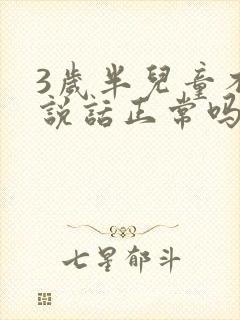 3歲半兒童不
說話正常吗
七星郁斗